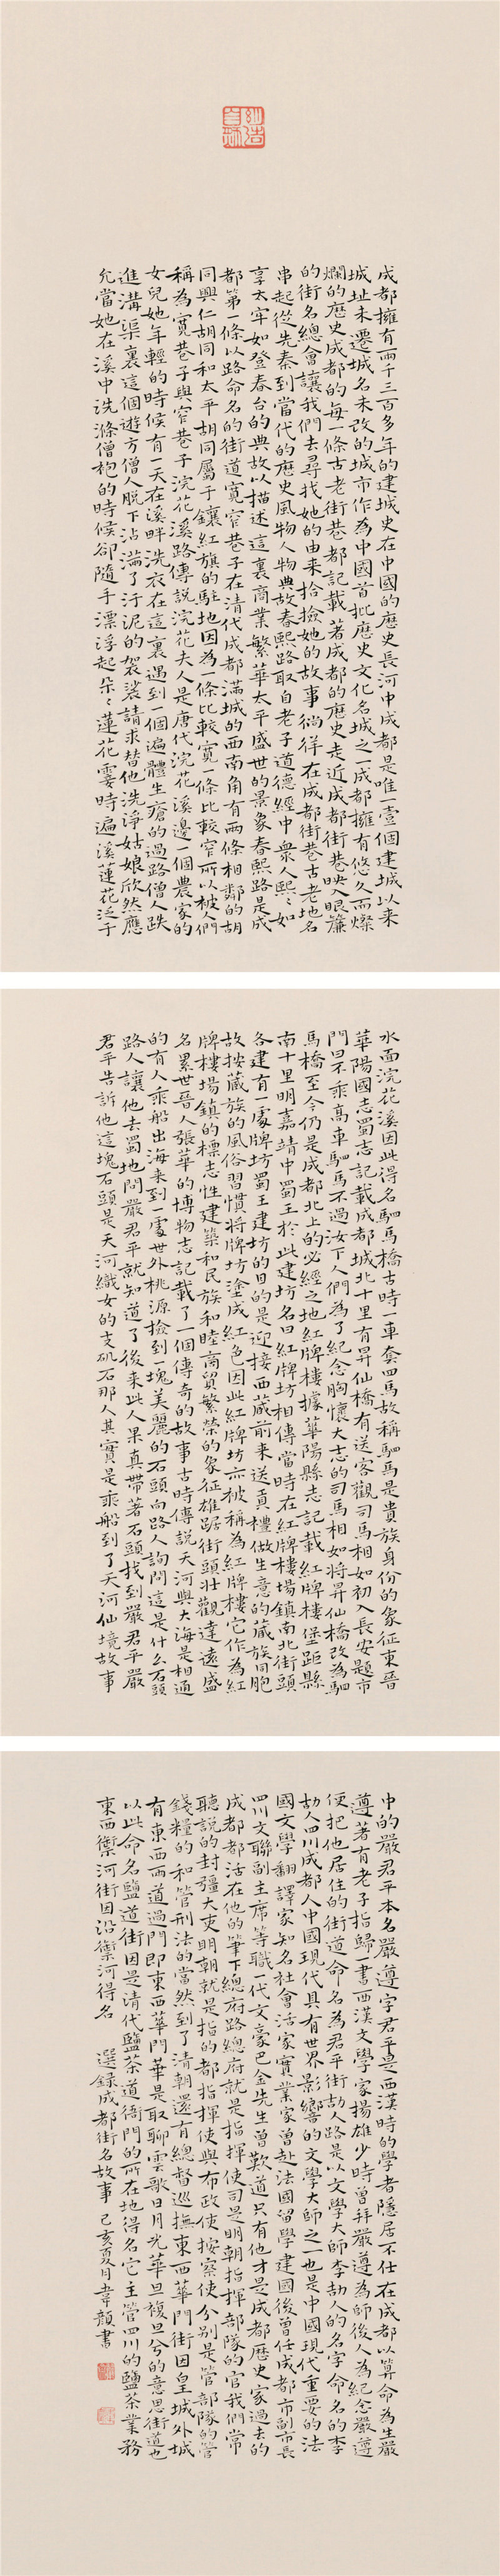 成都擁有二千三百多年的建城史在中國的歷史長河中成都是唯一壹個建城以来
城址未遷城名未改的城市作為中國首批歷史文化名城之一成都擁有悠久而燦
爛的歷史成都的每一條古老街巷都記載著成都的歷史走近成都街巷映入眼簾
的街名總會讓我們去尋找她的由来拾撿她的故事徜徉在成都街巷古老地名
串起從先秦到當代的歷史風物人物典故春熙路取自老子道德經中衆人熙〻如
享太牢如登春台的典故以描述這裏商業繁華太平盛世的景象春熙路是成
都第一條以路命名的街道寬窄巷子在清代成都滿城的西南角有兩條相鄰的胡
同興仁胡同和太平胡同屬于鑲紅旗的駐地因為一條比較寬一條比較窄所以被人們
稱為寬巷子與窄巷子浣花溪路傳説浣花夫人是唐代浣花溪邊一個農家的
女兒她年輕的時候有一天在溪畔洗衣在這裏遇到一個遍體生瘡的過路僧人跌
進溝渠裏這個遊方僧人脱下沾滿了汙泥的袈裟請求替他洗淨姑娘欣然應
允當她在溪中洗滌僧袍的時候卻隨手漂浮起朵〻蓮花霎時遍溪蓮花泛于
水面浣花溪因此得名駟馬橋古時一車套四馬故稱駟馬是貴族身份的象征東晉
華陽國志蜀志記載成都城北十里有昇仙橋有送客觀司馬相如初入長安題市
門曰不乘高車駟馬不過汝下人們為了紀念胸懷大志的司馬相如將昇仙橋改為駟
馬橋至今仍是成都北上的必經之地紅牌樓據華陽縣志記載紅牌樓堡距縣
南十里明嘉靖中蜀王於此建坊名曰紅牌坊相傳當時在紅牌樓場鎮南北街頭
各建有一處牌坊蜀王建坊的目的是迎接西藏前来送貢禮做生意的藏族同胞
故按藏族的風俗習慣將牌坊塗成紅色因此紅牌坊亦被稱為紅牌樓它作為紅
牌樓場鎮的標志性建築和民族和睦商貿繁榮的象征雄踞街頭壯觀達遠盛
名累世晉人張華的博物志記載了一個傳奇的故事古時傳説天河與大海是相通
的有人乘船出海来到一處世外桃源撿到一塊美麗的石頭向路人詢問這是什么石頭
路人讓他去蜀地問嚴君平就知道了後来此人果真帶著石頭找到嚴君平嚴
君平告訴他這塊石頭是天河織女的支矶石那人其實是乘船到了天河仙境故事
中的嚴君平本名嚴遵字君平是西漢時的學者隱居不仕在成都以算命為生嚴
遵著有老子指歸一書西漢文學家揚雄少時曾拜嚴遵為師後人為紀念嚴遵
便把他居住的街道命名為君平街劼人路是以文學大師李劼人的名字命名的李
劼人四川成都人中國現代具有世界影響的文學大師之一也是中國現代重要的法
國文學翻譯家知名社會活家實業家曾赴法國留學建國後曾任成都市副市長
四川文聯副主席等職一代文豪巴金先生曾歎道只有他才是成都歷史家過去的
成都都活在他的筆下總府路總府就是指揮使司是明朝指揮部隊的官我們常
聽説的封疆大吏明朝就是指的都指揮使與布政使按察使分别是管部隊的管
錢糧的和管刑法的當然到了清朝還有總督巡撫東西華門街因皇城外城
有東西兩道過門即東西華門華是取聊雲歌日月光華旦複旦兮的意思街道也
以此命名鹽道街因是清代鹽茶道衙門的所在地得名它主管四川的鹽茶業務
東西禦河街因沿禦河得名 選録成都街名故事己亥夏月韋顔書